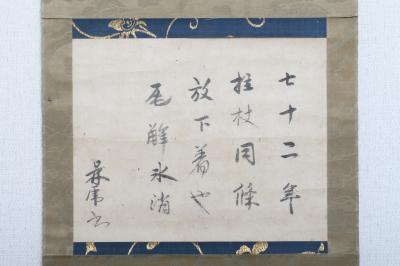 七十二年
拄杖同條
放下著也
瓦解氷消